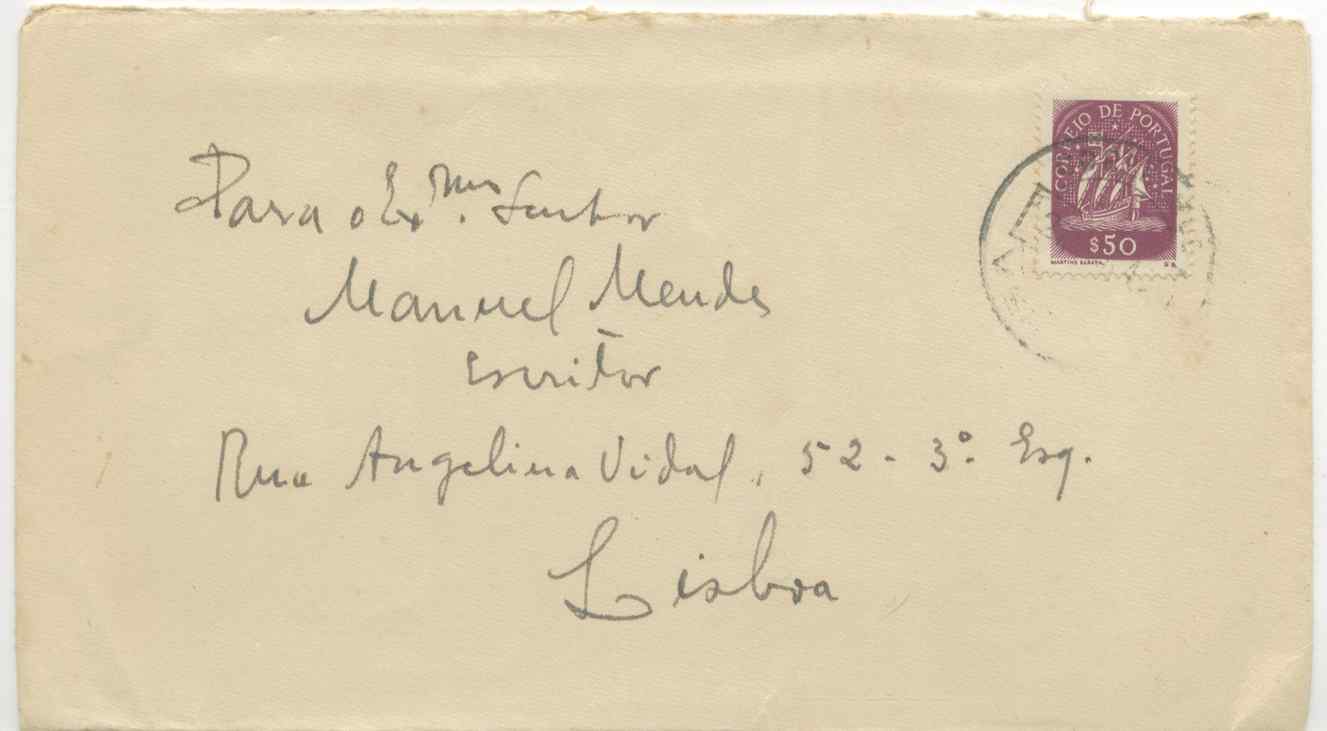 CORREIO DE PORTUGAL
$50
MARTINS BARATA
Para o Exmo. Senhor
Manuel Mendes
Escritor
Rua Angelina Vidal, 52 - 3º Esq.
Lisboa